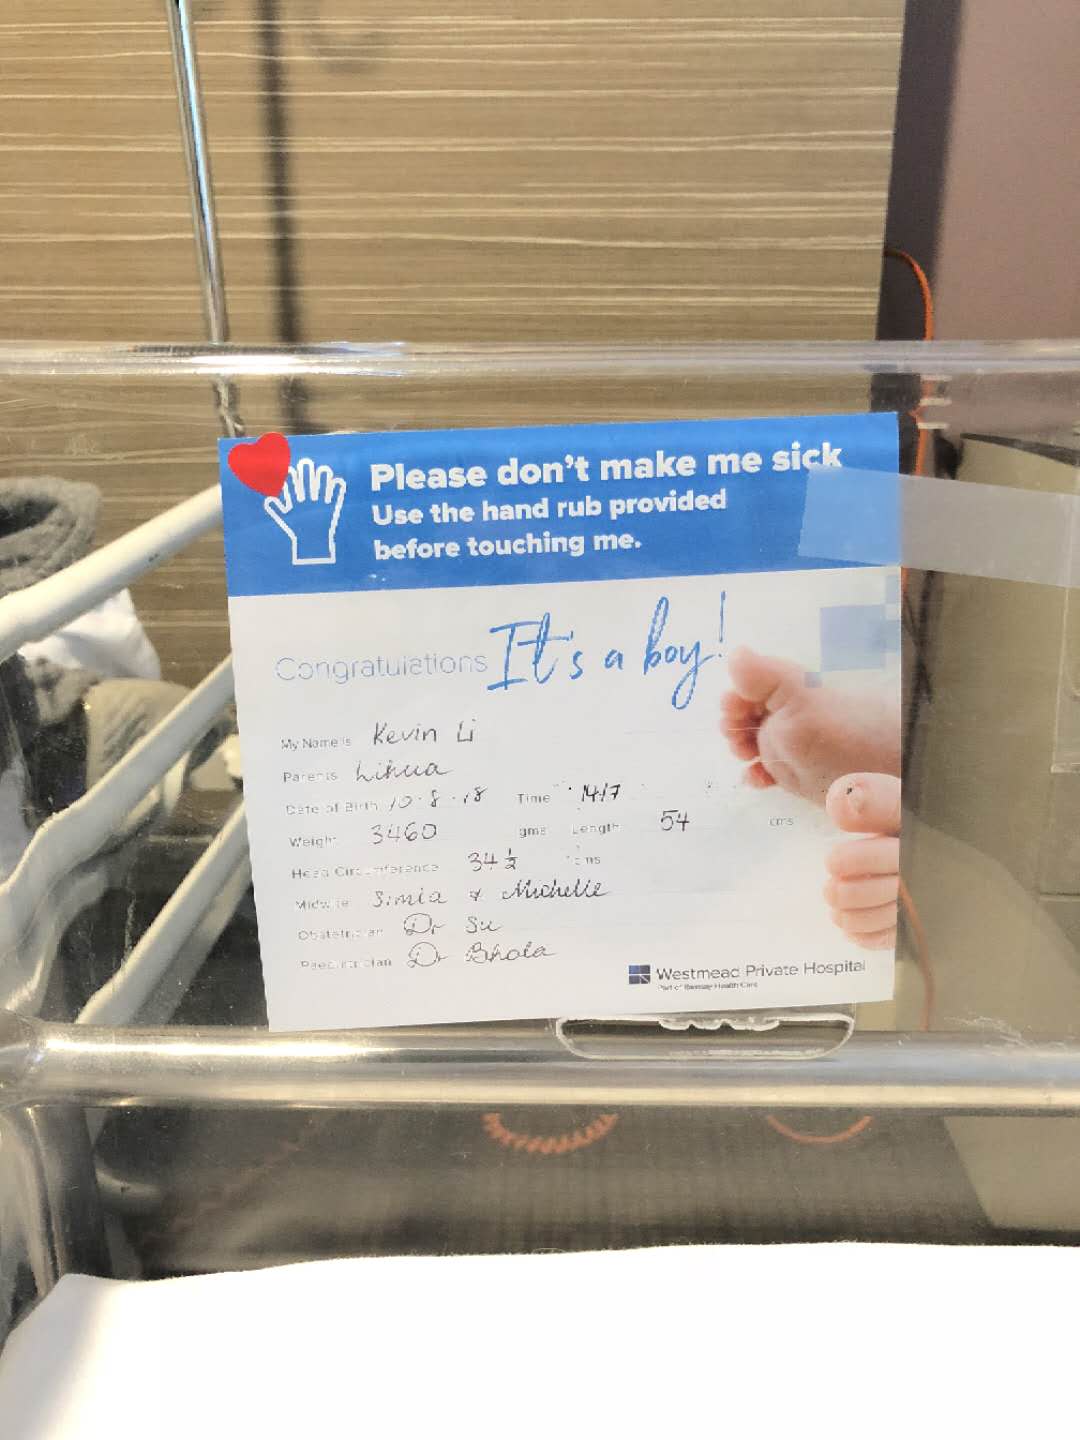 Please don't make me sick
Use the hand rub provided
before touching me.
Congratulations It's a boy!
My Name is Kevin Li
Parents Lihua
Date of Birth 10.8.18 Time 1417
Weight 3460 gms Length 54 cms
Head Circumference 34 ½ cms
Midwife Simla & Michelle
Obstetrician Dr Su
Paediatrician Dr Bhola
Westmead Private Hospital
Part of Ramsay Health Care